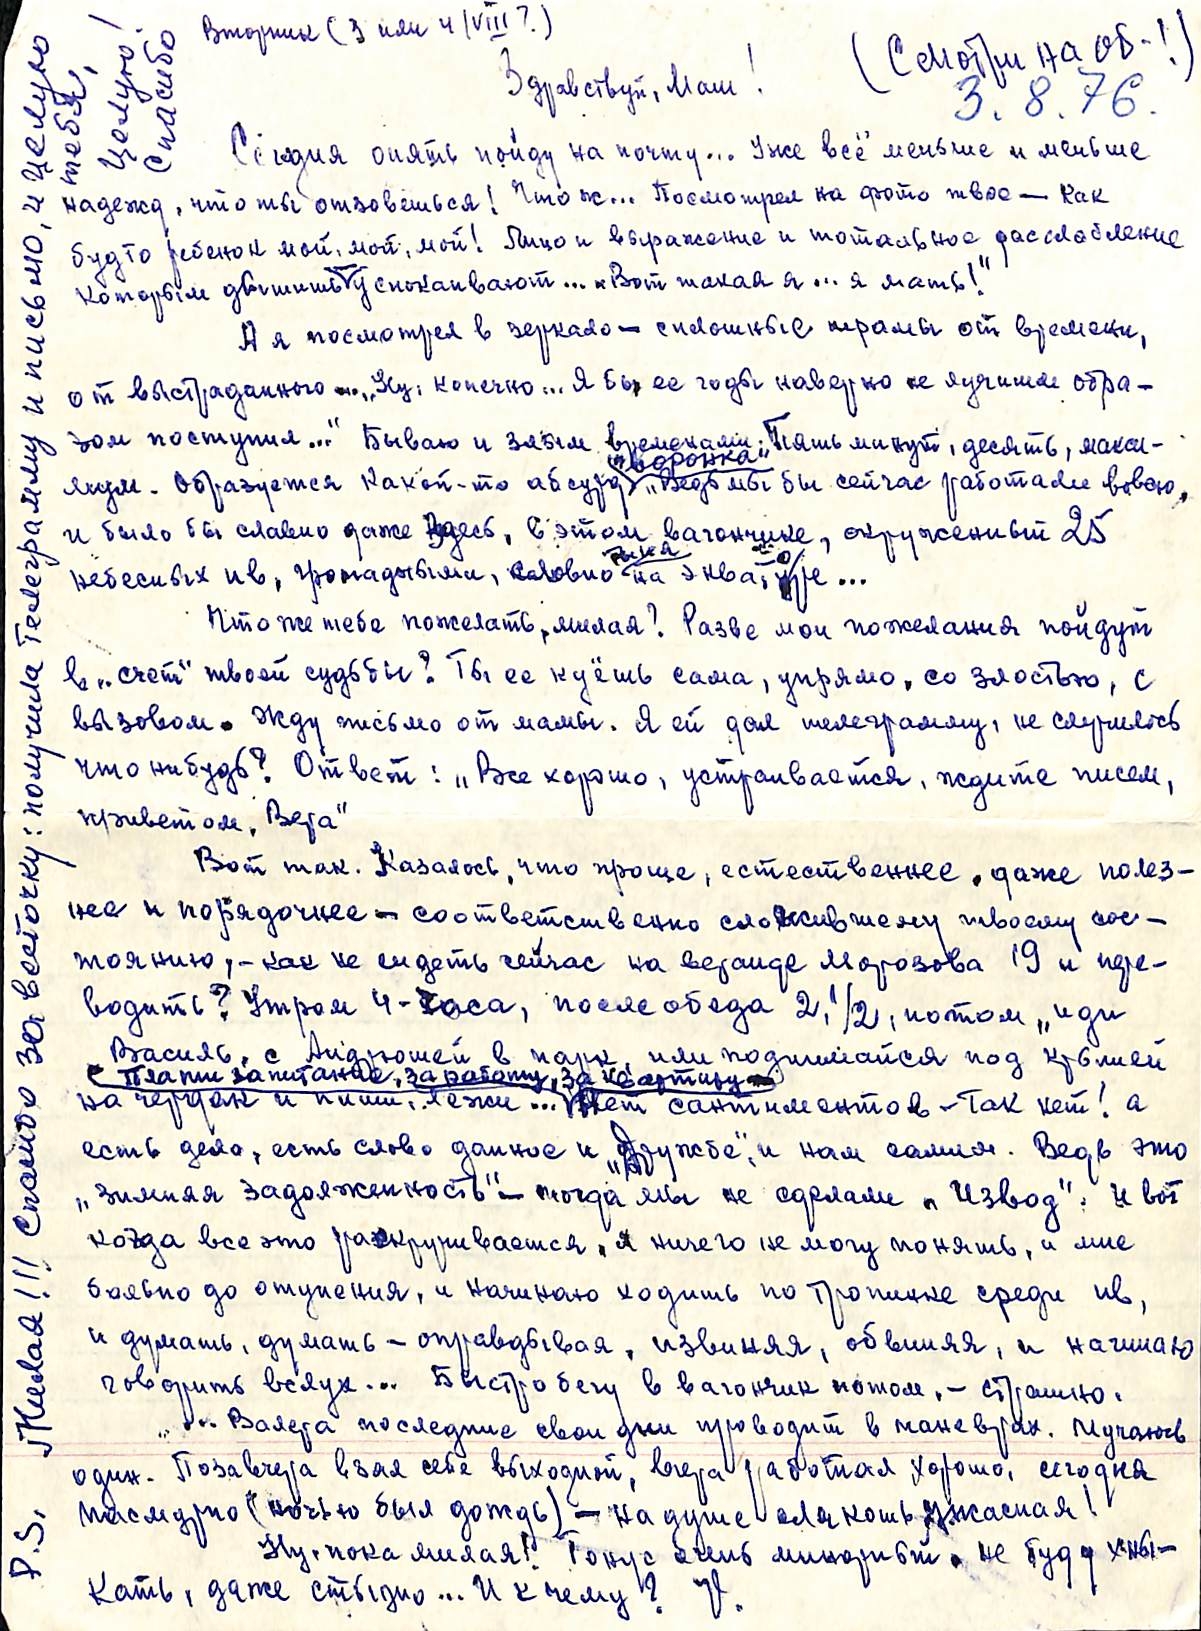 Вторник (3 или 4/VIII?)
(Смотри на об-!)
3.8.76.
Здравствуй, Маш!
Сегодня опять пойду на почту... Уже всё меньше и меньше
надежд, что ты отзовёшься! Что ж... Посмотрел на фото твое — как
будто ребенок мой, мой, мой! Лицо и выражение и тотальное расслабление
которым дышишь успокаивают... „Вот такая я... я мать!"
А я посмотрел в зеркало — сплошные шрамы от времени,
от выстраданного... „Ну, конечно... Я бы в ее годы наверно не лучшим обра-
зом поступил..." Бываю и злым временами. Пять минут, десять, макси-
мум. Образуется какой-то абсурд, „воронка" „Ведь мы бы сейчас работали вовсю,
и было бы славно даже здесь, в этом вагончике, окруженный 25
небесных ив, громадными, словно на экваторе...
Что же тебе пожелать, милая? Разве мои пожелания пойдут
в „счет" твоей судьбы? Ты ее куёшь сама, упрямо, со злостью, с
вызовом. Жду письмо от мамы. Я ей дал телеграмму, не случилось
что нибудь? Ответ: „Все хорошо, устраивается, ждите писем,
приветом, Вера"
Вот так. Казалось, что проще, естественнее, даже полез-
нее и порядочнее — соответственно сложившему твоему сос-
тоянию, — как не сидеть сейчас на веранде Морозова 19 и пере-
водить? Утром 4 часа, после обеда 2, 1/2, потом „иди
Василь, с Андрюшей в парк, или подымайся под крышей
Плати за питание, за работу, за картину
на чердак и пиши, лежи... Нет сантиментов — Так нет! а
есть дело, есть слово данное и „Дружбе", и нам самим. Ведь это
„зимняя задолженность" — тогда мы не сделали „Извод". И вот
когда все это раскручивается, я ничего не могу понять, и мне
больно до отупения, и начинаю ходить по тропинке среди ив,
и думать, думать — оправдывая, извиняя, обвиняя, и начинаю
говорить вслух... Быстро бегу в вагончик потом, — страшно.
... Валера последние свои дни проводит в маневрах. Мучаюсь
один. Позавчера взял себе выходной, вчера работал хорошо, сегодня
пасмурно (ночью был дождь) — на душе слякоть ужасная!
Ну, пока милая! Тонус очень минорный, не буду хны-
кать, даже стыдно... И к чему? V.
P.S. Милая!!! Спасибо за весточку: получила телеграмму и письмо, и целую
тебя,
целую!
Спасибо